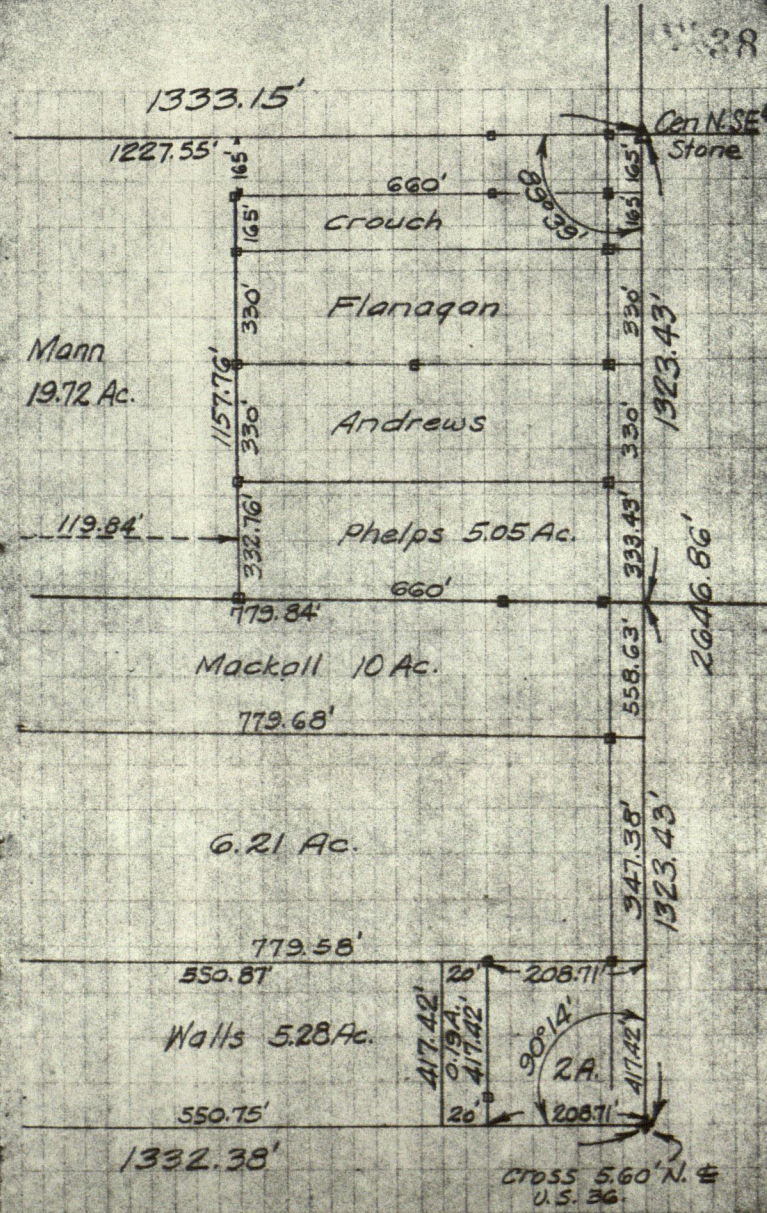 38
1333.15'
Cen N. SE
Stone
1227.55'
165'
165'
660'
89°39'
165'
165'
Crouch
330'
Flanagan
330'
1323.43'
Mann
19.72 Ac.
1157.76'
330'
Andrews
330'
119.84'
332.76'
Phelps 5.05 Ac.
333.43'
2646.86'
660'
779.84'
Mackall 10 Ac.
558.63'
779.68'
6.21 Ac.
347.38'
1323.43'
779.58'
550.87'
20'
208.71'
Walls 5.28 Ac.
417.42'
0.19 A.
417.42'
90°14'
2 A.
417.42'
550.75'
20'
208.71'
1332.38'
Cross 5.60' N. ℄
U.S. 36.